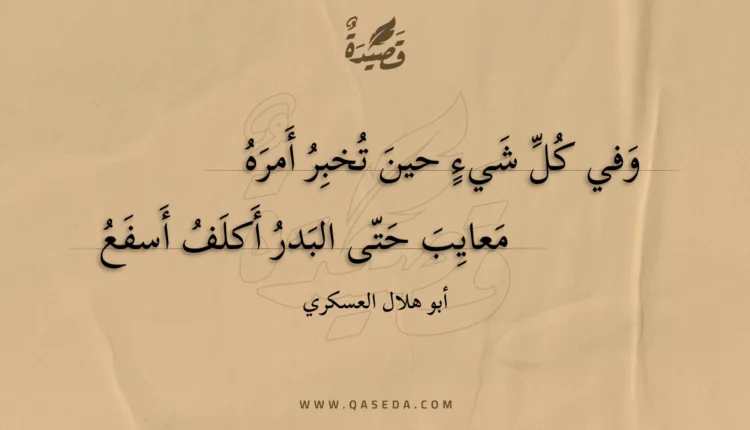 قَصِيدَةٌ
وَفي كُلِّ شَيءٍ حينَ تُخبِرُ أَمرَهُ
مَعايِبَ حَتّى البَدرُ أَكلَفُ أَسفَعُ
أبو هلال العسكري
WWW.QASEDA.COM